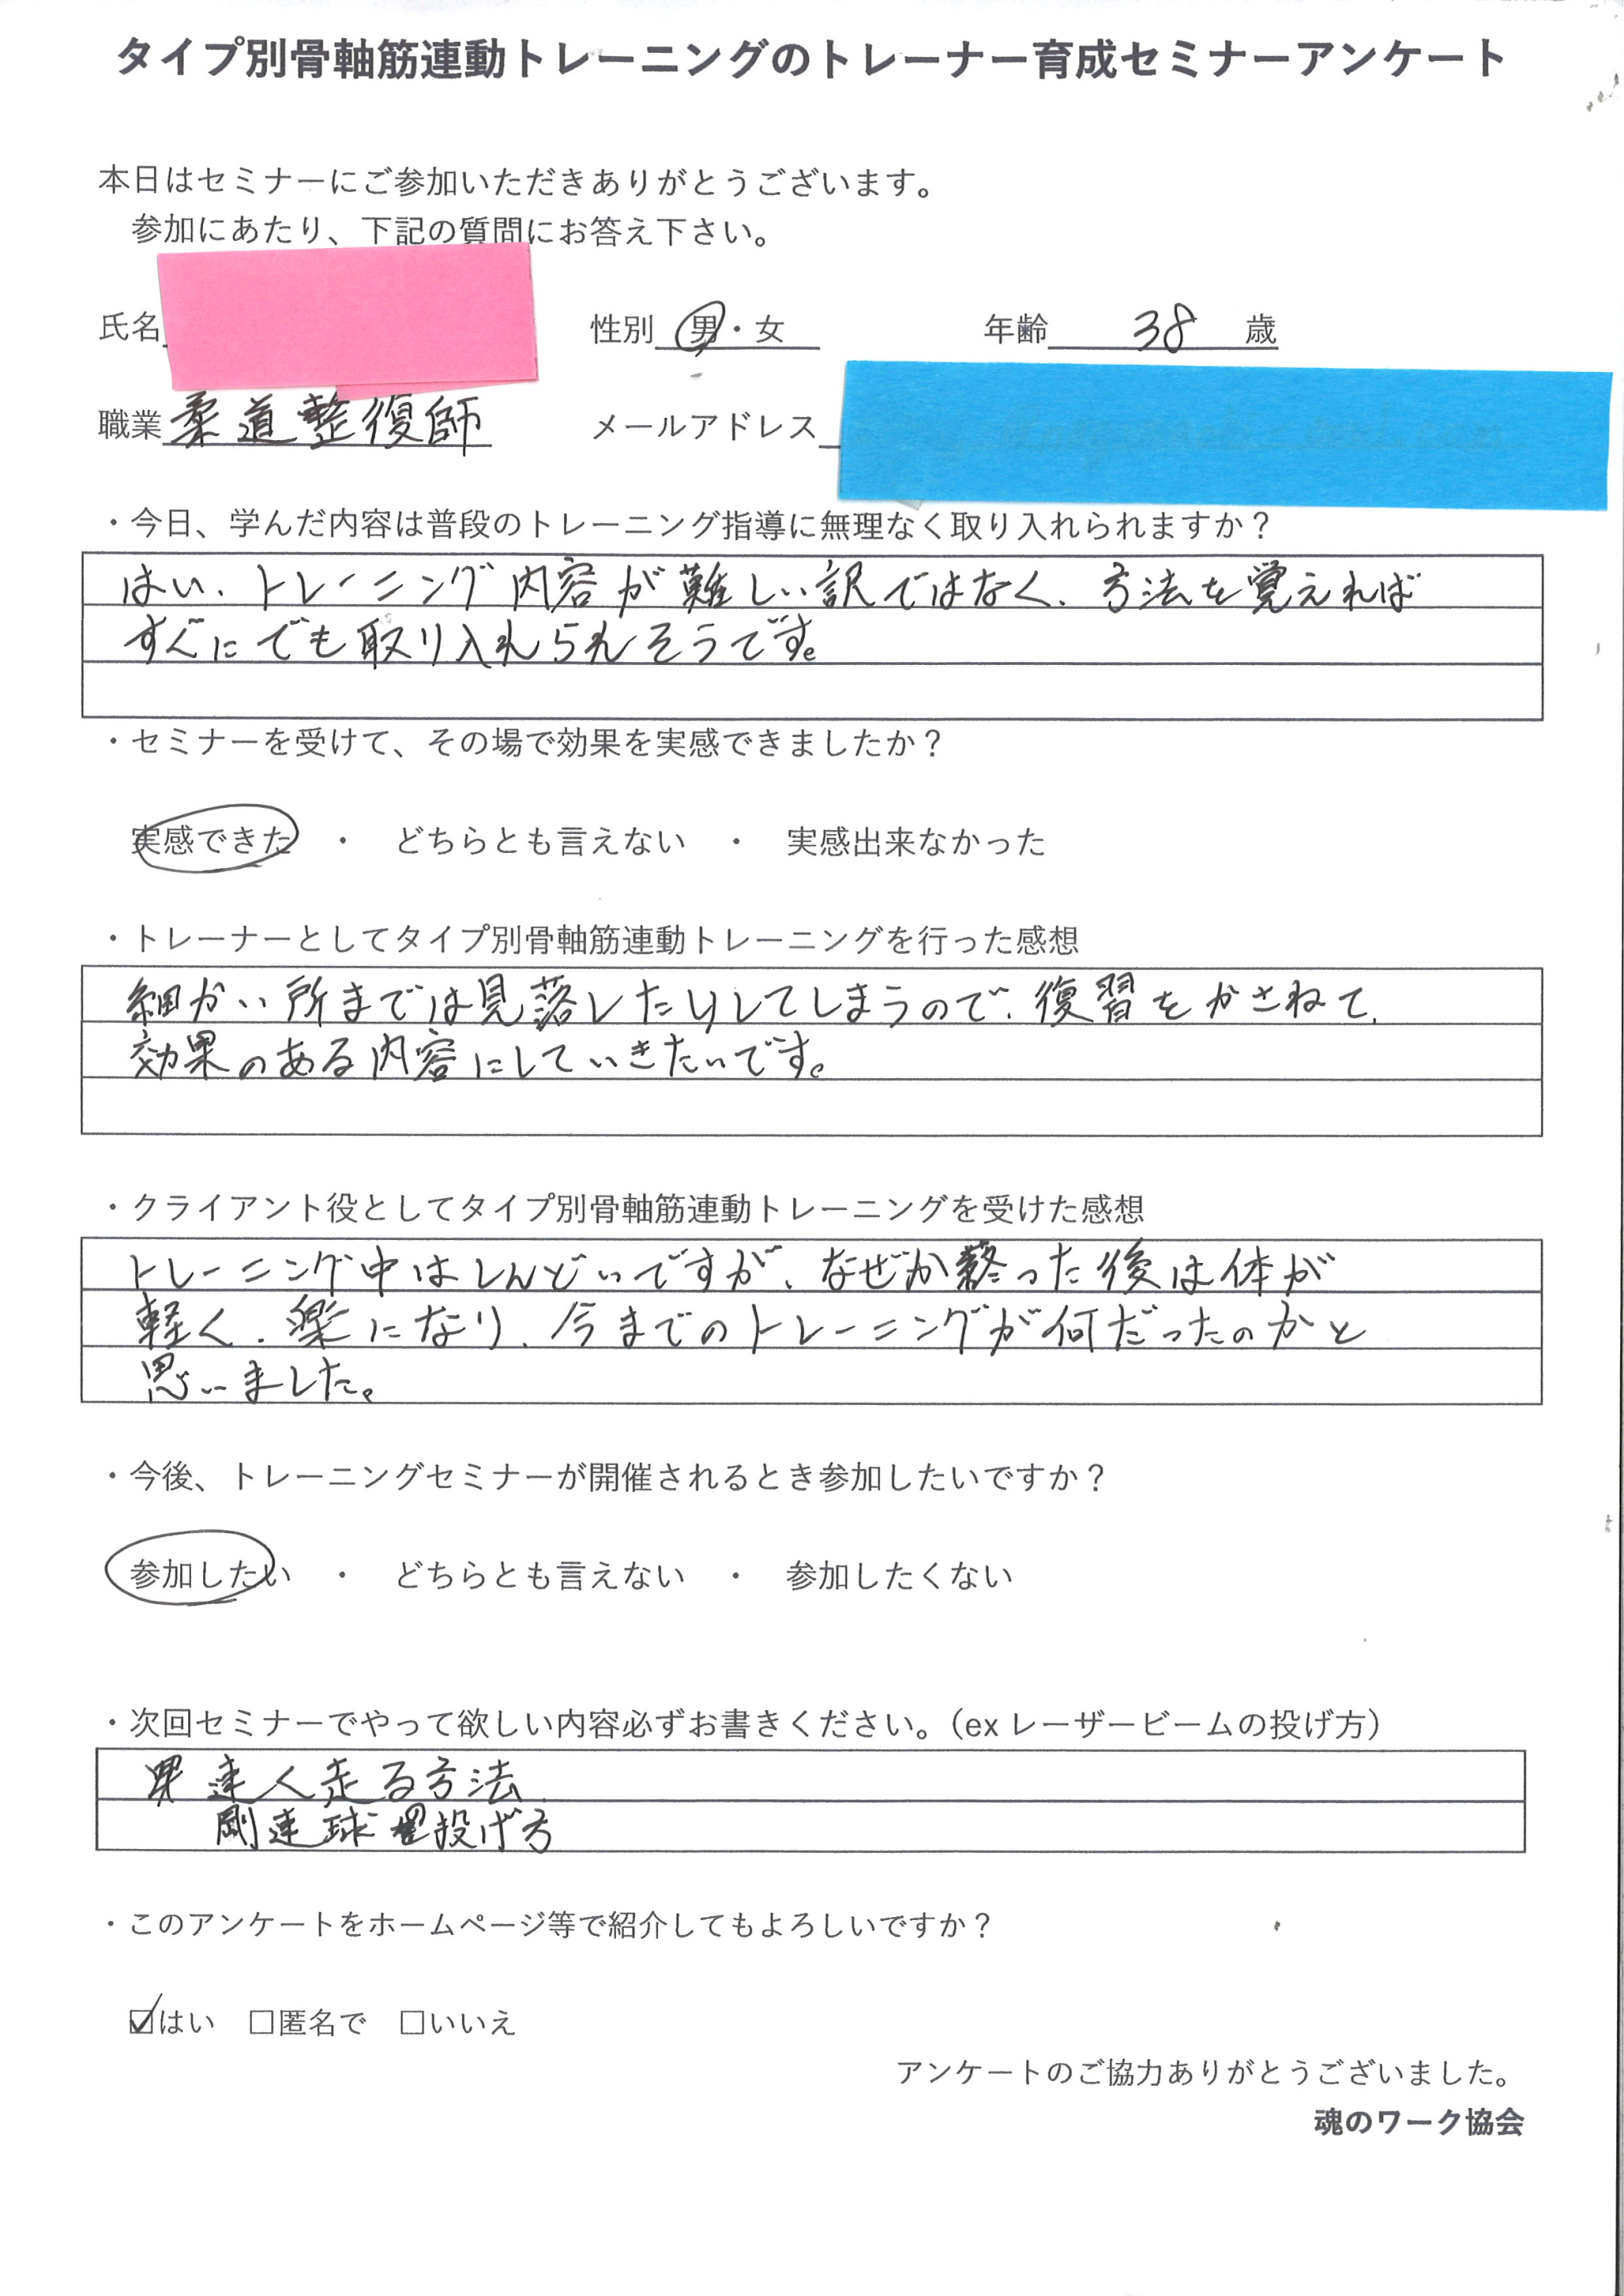 タイプ別骨軸筋連動トレーニングのトレーナー育成セミナーアンケート
本日はセミナーにご参加いただきありがとうございます。
参加にあたり、下記の質問にお答え下さい。
氏名 性別 男・女 年齢 38 歳
職業 柔道整復師 メールアドレス
・今日、学んだ内容は普段のトレーニング指導に無理なく取り入れられますか？
はい、トレーニング内容が難しい訳ではなく、方法を覚えれば
すぐにでも取り入れられそうです。
・セミナーを受けて、その場で効果を実感できましたか？
実感できた ・ どちらとも言えない ・ 実感出来なかった
・トレーナーとしてタイプ別骨軸筋連動トレーニングを行った感想
細かい所までは見落したりしてしまうので、復習をかさねて、
効果のある内容にしていきたいです。
・クライアント役としてタイプ別骨軸筋連動トレーニングを受けた感想
トレーニング中はしんどいですが、なぜか終った後は体が
軽く、楽になり、今までのトレーニングが何だったのかと
思いました。
・今後、トレーニングセミナーが開催されるとき参加したいですか？
参加したい ・ どちらとも言えない ・ 参加したくない
・次回セミナーでやって欲しい内容必ずお書きください。（ex レーザービームの投げ方）
走る方法
剛速球 投げ方
・このアンケートをホームページ等で紹介してもよろしいですか？
☑はい □匿名で □いいえ
アンケートのご協力ありがとうございました。
魂のワーク協会